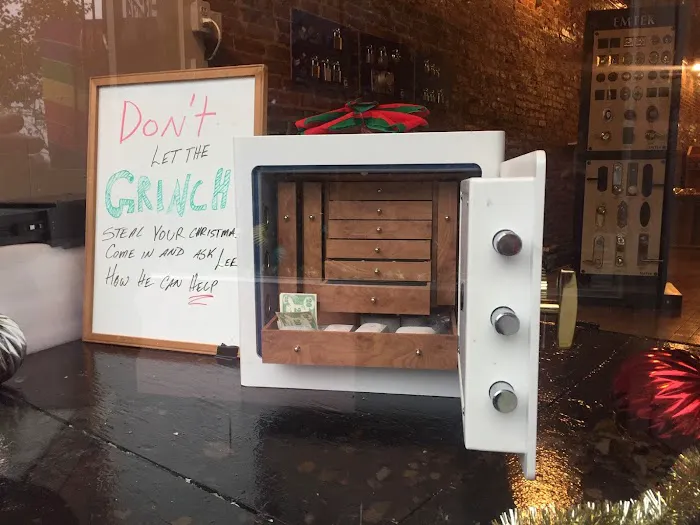 Don't
LET THE
GRINCH
STEAL YOUR CHRISTMA
COME IN AND ASK LEE
HOW HE CAN HELP
EMTEK